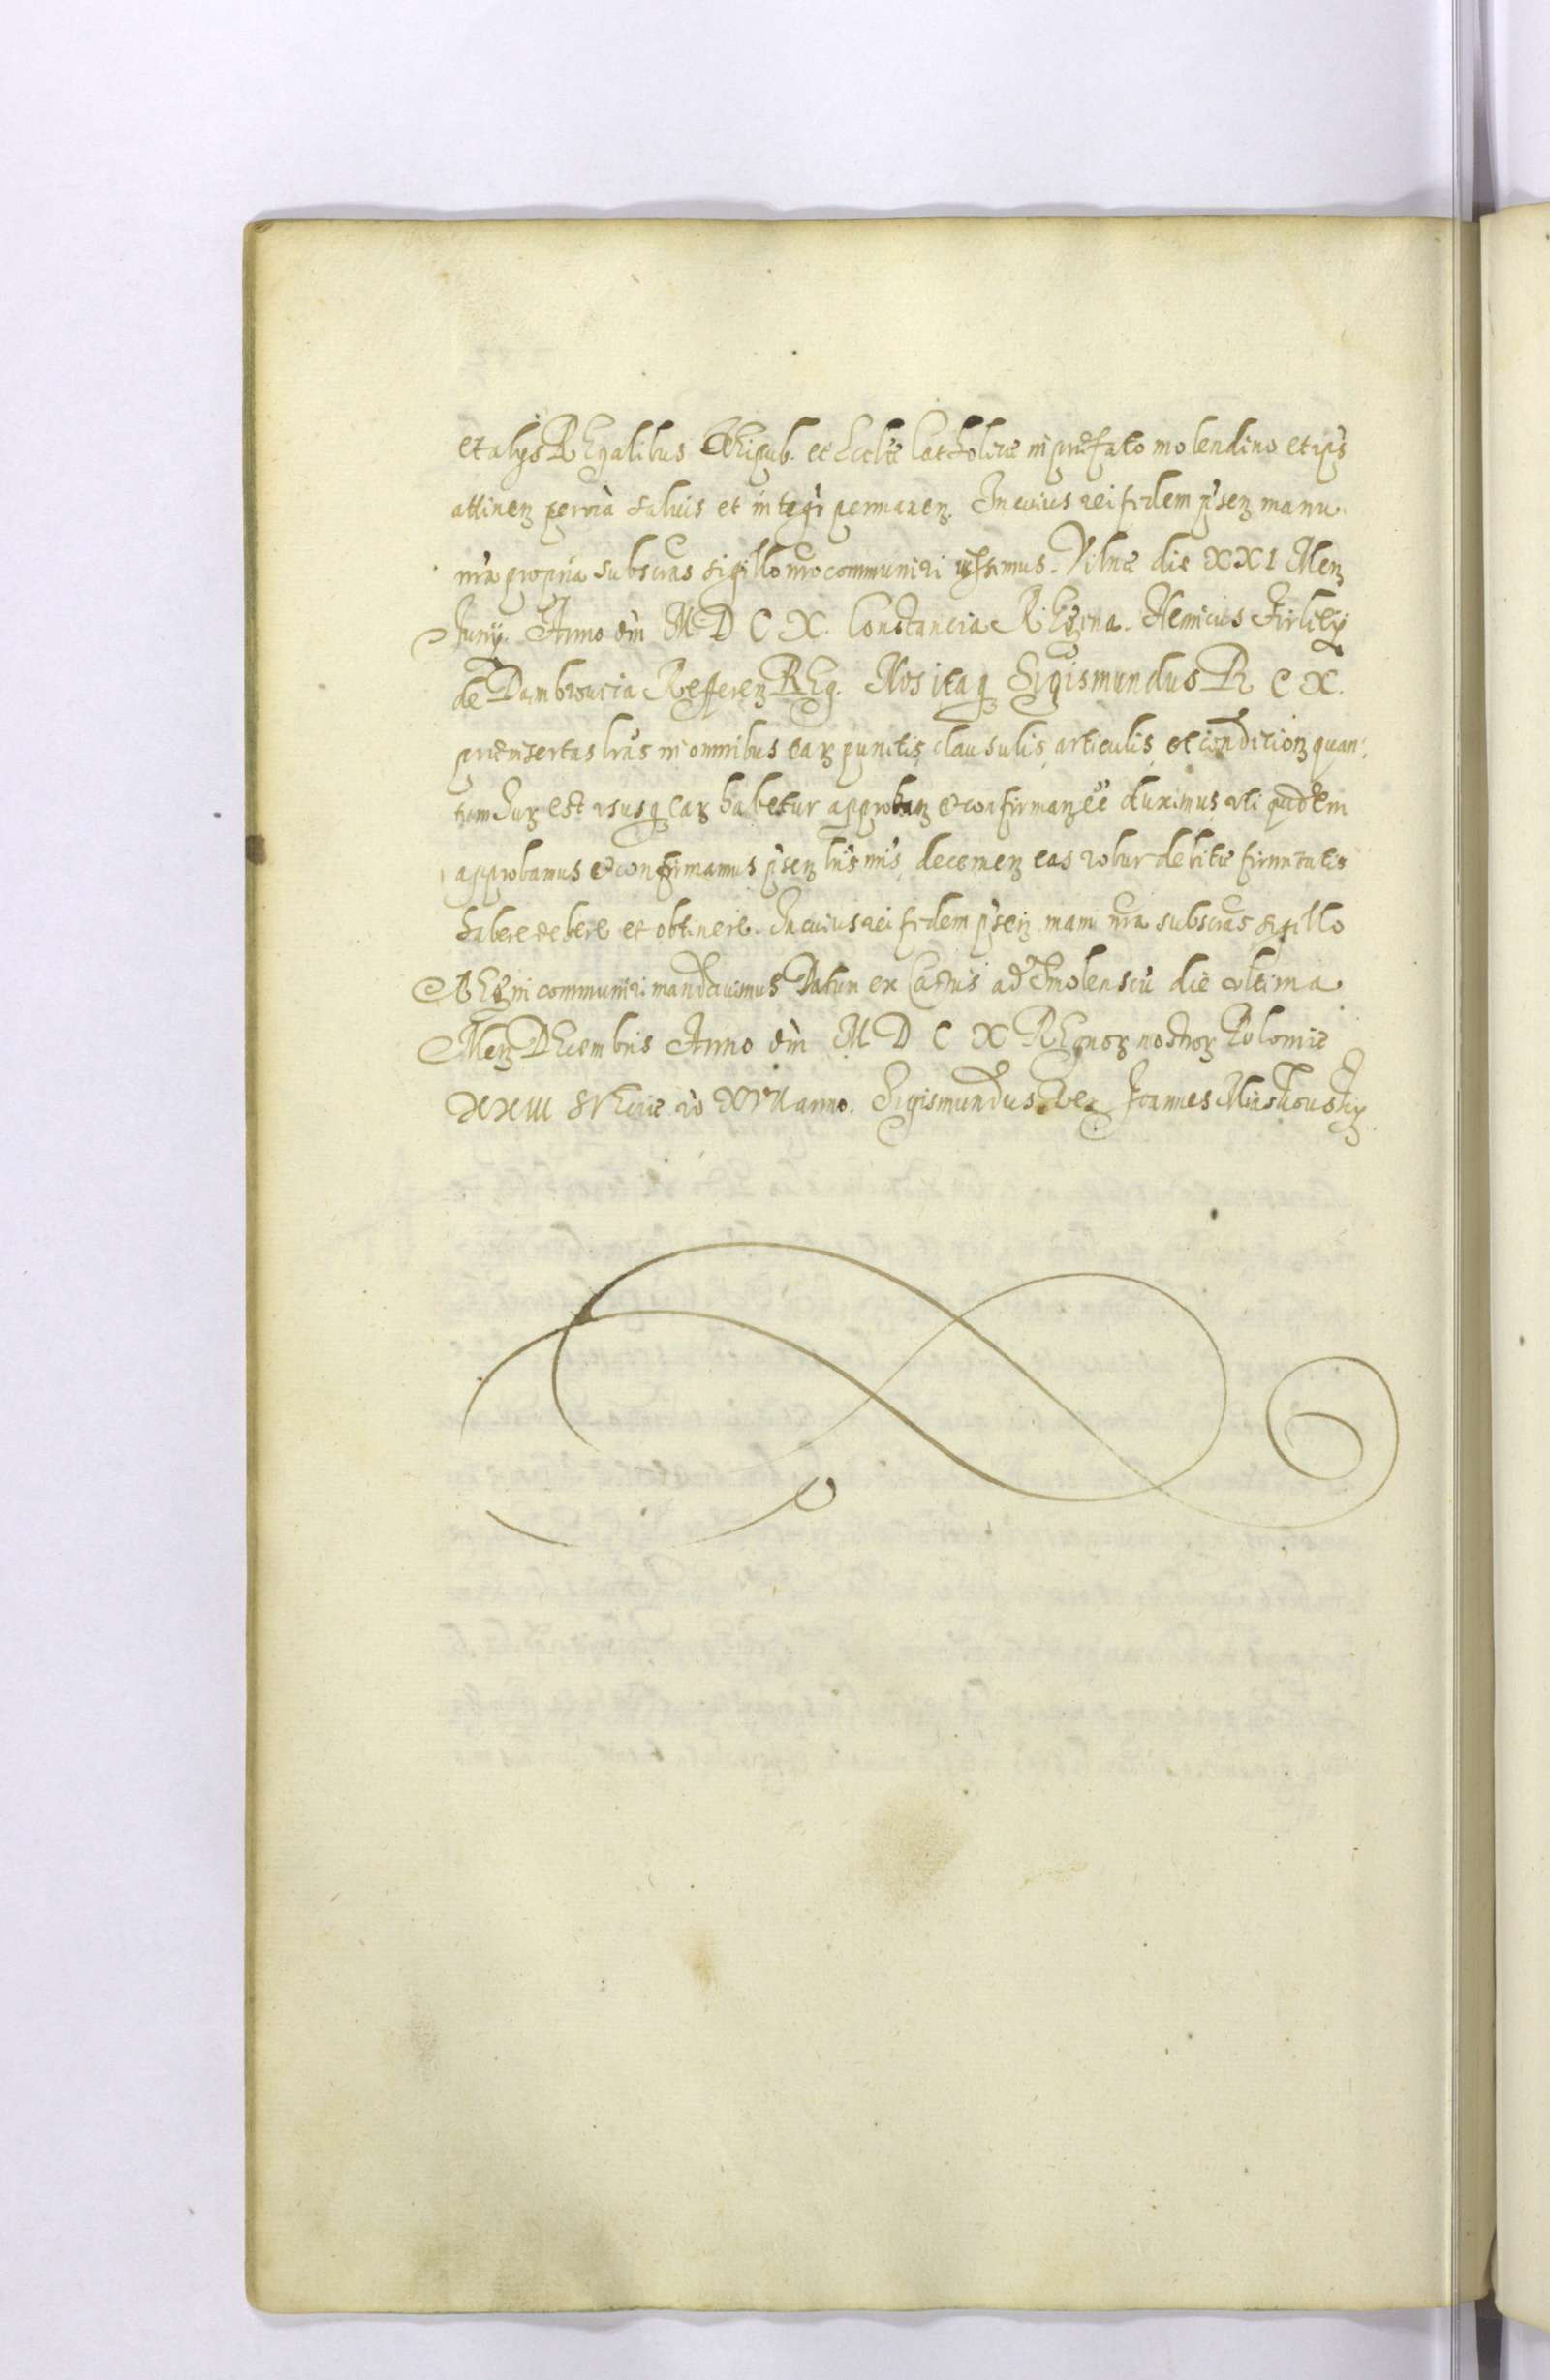 et alijs Regalibus Reipub. et Eccl̃æ Catholicæ in præfato molendino et ip̃s
attineñ perṁa saluis et integr̃ permaneñ. In cuius rei fidem p̃señ manu
nr̃a propria subscras sigillo nr̃o communiri iussimus. Vilnæ die XXI Meñ
Junÿ. Anno dñi M D C X. Constancia Regina. Henricus Firleÿ
de Dambrouicia Refferen Reg. Nos itaq Sigismundus R C X.
præinsertas lr̃as in omnibus earʒ punctis, clausulis, articulis, et condicionʒ quan-
tum Jurʒ est vsusq earʒ habetur approbanʒ et confirmanʒ eẽ duximus, vti quidem
approbamus et confirmamus p̃señ lr̃is nr̃is, decernenʒ eas robur debitæ firmitatis
habere debere et obtinere. In cuius rei fidem p̃señ manu nr̃a subscras sigillo
Regni communiri mandauimus Datum ex Castris ad Smolenscũ die vltima
Meñ Decembris Anno dñi M D C X Regnorʒ nostrorʒ Poloniæ
XXIII Sueciæ v̊o XVII anno. Sigismundus Rex Joannes Miaskouskÿ